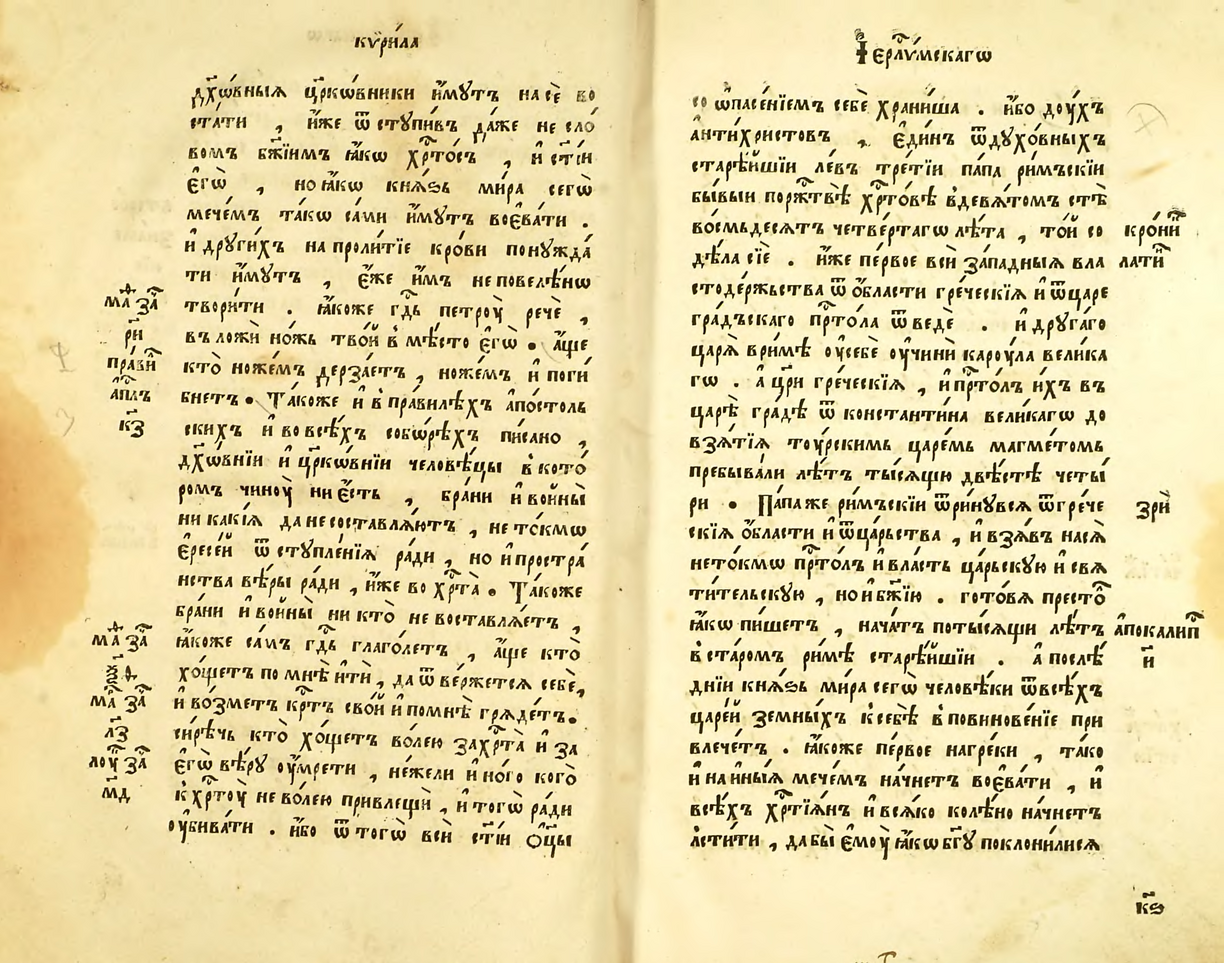 кѷри́ла
дх҃ѡ́вныѧ цр҃кѡ́вники и҆́мꙋтъ на сѐ во
ста́ти , и҆́же ѿстꙋпи́въ да́же не сло́
вомъ бж҃іимъ ꙗ҆́кѡ хрⷭ҇то́съ , и҆ ст҃і́и
є҆гѡ̀ , но ꙗ҆́кѡ кнѧ́ѕь ми́ра сегѡ̀
мече́мъ та́кѡ са́ми и҆́мꙋтъ воєва́ти .
и҆ дрꙋги́хъ на проли́тїе кро́ви понꙋжда́
ти и҆́мꙋтъ , є҆́же и҆̀мъ не повелѣ́нѡ
твори́ти . ꙗ҆́коже гдⷭ҇ь петроу̀ речѐ ,
въложѝ но́жь тво́й в мѣ́сто є҆гѡ̀ . а҆́ще
кто̀ ноже́мъ дерза́етъ , ноже́мъ и҆ поги́
бнетъ . Та́коже и҆ в пра́вилѣхъ а҆по́столь
скихъ и҆ во всѣ́хъ собѡ́рѣхъ пи́сано ,
дх҃ѡ́внїи и҆ цр҃кѡ́внїи человѣ́цы в кото́
ромъ чиноу̀ ни є҆́сть , бра́ни и҆ войны̀
ни какі́ѧ да не составлѧ́ютъ , не то́кмѡ
є҆ресе́й ѿстꙋпле́нїѧ ра́ди , но и҆ простра́
нства вѣ́ры ра́ди , и҆́же во хрⷭ҇та̀ . Та́коже
бра́ни и҆ войны̀ ни кто̀ не воставлѧ́етъ ,
ꙗ҆́коже са́мъ гдⷭ҇ь глаго́летъ , а҆́ще кто̀
хо́щетъ по мнѣ̀ и҆тѝ , да ѿве́ржетсѧ себѐ ,
и҆ во́зметъ крⷭ҇тъ сво́й и҆ по мнѣ̀ грѧде́тъ .
си́рѣчь кто̀ хо́щетъ во́лею за хрⷭ҇та̀ и҆ за
є҆гѡ̀ вѣ́рꙋ оу҆мре́ти , не́жели и҆но́го кого̀
к хрⷭ҇тоу̀ не во́лею привлещѝ , и҆ тогѡ̀ ра́ди
оу҆бива́ти . и҆́бо ѿ тогѡ̀ всѝ ст҃і́и ѻ҆ц҃ы̀
маⷴ҇ заⷱ҇
ри
правиⷧ҇
а҆пⷭ҇лъ
к҃з
маⷴ҇ заⷱ҇
маⷴ҇ заⷱ҇
л҃з
лоуⷦ҇ заⷱ҇
м҃д
І҆ерⷭ҇лꙋ́мскагѡ
со ѡ҆пасе́нїемъ себѐ храни́ша . и҆́бо доу́хъ
а҆нти́христовъ , є҆ди́нъ ѿ дꙋхо́вныхъ
старѣ́йшїи ле́въ тре́тїи па́па ри́мъскїи
бы́выи по рожⷭ҇твѣ̀ хрⷭ҇то́вѣ в девѧ́томъ стѣ̀
во́смьдесѧтъ четве́ртагѡ лѣ́та , то́й со
дѣ́ла сїѐ . и҆́же пе́рвое всѝ за́падныѧ вла
стодержьства ѿ ѻ҆́бласти гре́ческїѧ и҆ ѿ царе
гра́дъскаго прⷭ҇то́ла ѿведѐ . и҆ дрꙋга́го
царѧ̀ в ри́мѣ оу҆ себе оу҆чинѝ кароу́ла вели́ка
гѡ . а҆ цр҃и гре́ческїѧ , и҆ прⷭ҇то́лъ и҆́хъ въ
царѣ̀ гра́дѣ ѿ константи́на вели́кагѡ до
взѧ́тїѧ тоу́рскимь царе́мь магме́томь
пребыва́ли лѣ́тъ ты́сѧщꙋ двѣ́стѣ четы́
ри . Па́па же ри́мъскїи ѿри́нꙋвсѧ ѿ гре́че
скїѧ ѻ҆́бласти и҆ ѿ ца́рьства , и҆ взѧ́въ на сѧ̀
не то́кмѡ прⷭ҇то́лъ и҆ вла́сть ца́рьскꙋю и҆ свѧ
ти́тельскꙋю , но и҆ бж҃їю . гото́вѧ престоⷧ҇
ꙗ҆́кѡ пи́шетъ , нача́тъ по ты́сѧщи лѣ́тъ
в ста́ромъ ри́мѣ старѣ́йшїи . а҆ по́слѣ
днїи кнѧ́ѕь ми́ра сегѡ̀ человѣ́ки ѿ всѣ́хъ
царе́й земны́хъ к себѣ̀ в повинове́нїе при
влече́тъ . ꙗ҆́коже пе́рвое на гре́ки , та́ко
и҆ на и҆ны́ѧ мече́мъ начне́тъ воєва́ти , и҆
всѣ́хъ хрⷭ҇тїѧ́нъ и҆ всѧ́ко колѣ́но начне́тъ
лсти́ти , да бы̀ є҆моу̀ ꙗ҆́кѡ бг҃ꙋ поклони́лисѧ
крони
лати
зрѝ
а҆покалиⷫ҇
и҃
к҃ѳ